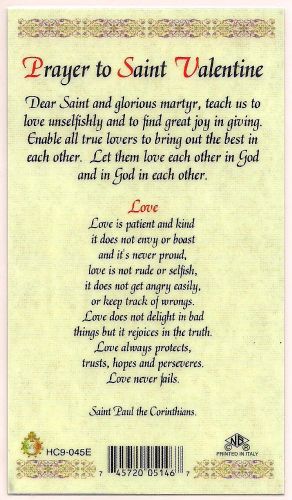 Prayer to Saint Valentine
Dear Saint and glorious martyr, teach us to
love unselfishly and to find great joy in giving.
Enable all true lovers to bring out the best in
each other. Let them love each other in God
and in God in each other.
Love
Love is patient and kind
it does not envy or boast
and it's never proud,
love is not rude or selfish,
it does not get angry easily,
or keep track of wrongs.
Love does not delight in bad
things but it rejoices in the truth.
Love always protects,
trusts, hopes and perseveres.
Love never fails.
Saint Paul the Corinthians.
HC9-045E
7 45720 05146 7
NB
PRINTED IN ITALY